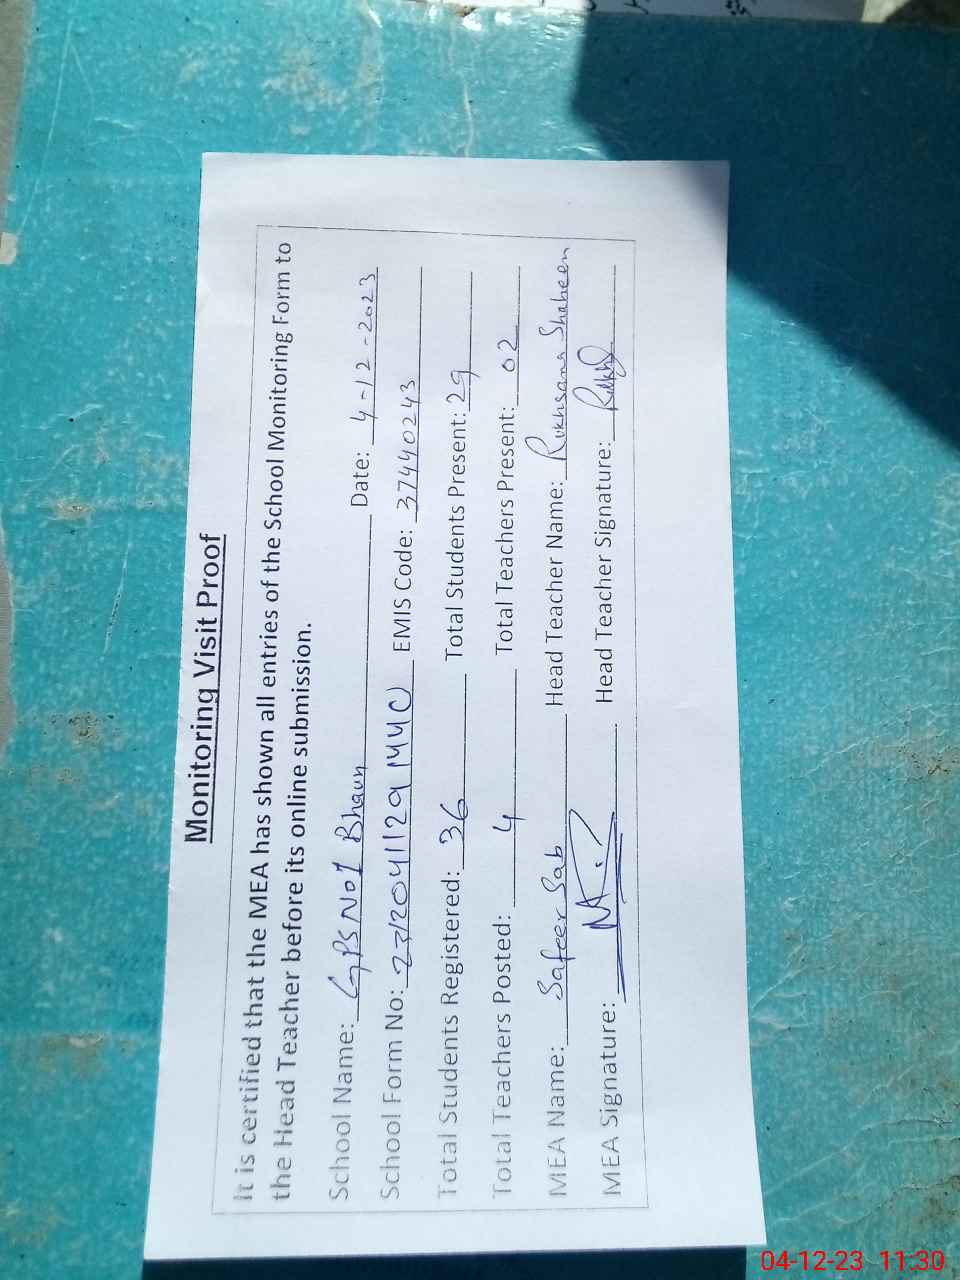 Monitoring Visit Proof
It is certified that the MEA has shown all entries of the School Monitoring Form to
the Head Teacher before its online submission.
School Name: GPS No1 Bhaun Date: 4-12-2023
School Form No: EMIS Code: 37440243
Total Students Registered: 36 Total Students Present: 29
Total Teachers Posted: 4 Total Teachers Present: 02
MEA Name: Safeer Sab Head Teacher Name: Rukhsana Shaheen
MEA Signature: Head Teacher Signature:
04-12-23 11:30